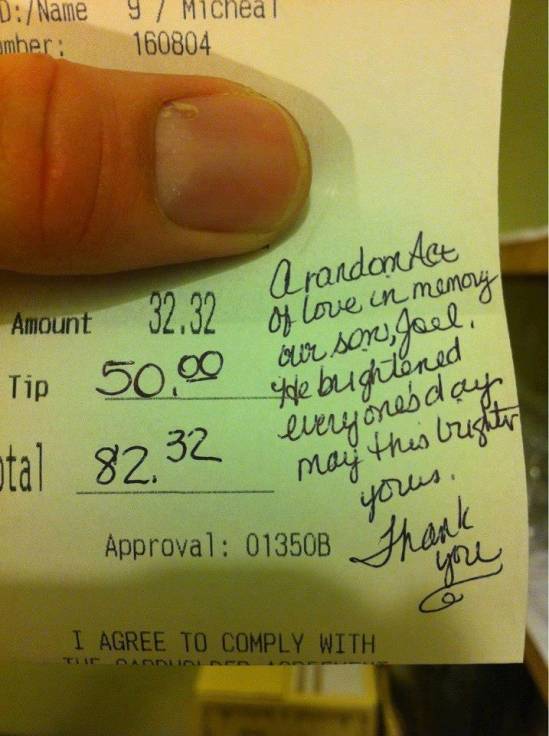 D:/Name 9 / Micheal
mber: 160804
Amount 32.32
Tip 50.00
otal 82.32
A random Act
of love in memory
our son, Joel.
He brightened
everyone's day
may this brighter
yours.
Thank
you
Approval: 01350B
I AGREE TO COMPLY WITH
THE CARDHOLDER AGREEMENT